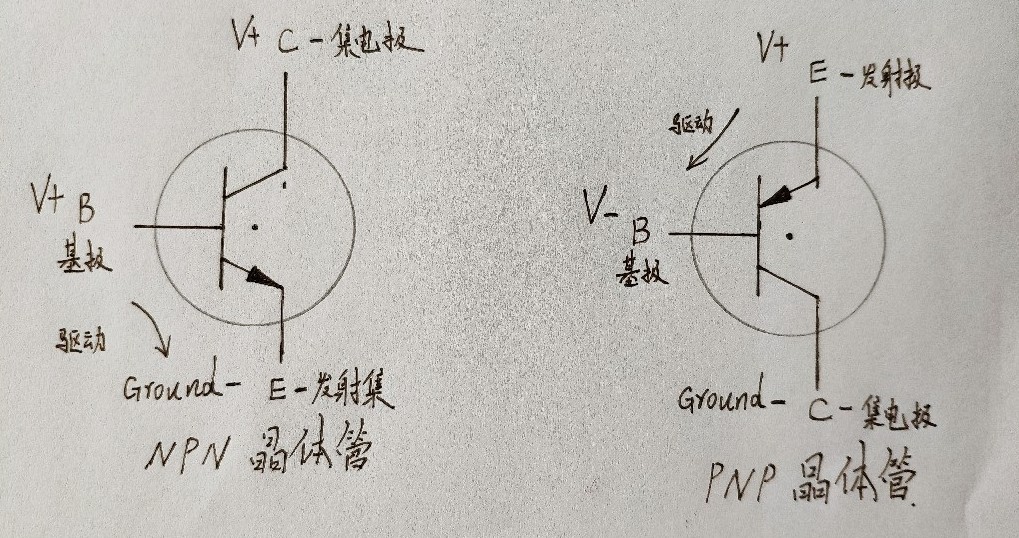 V+ C-集电极
V+ B
基极
驱动
Ground- E-发射集
NPN 晶体管
V+
E-发射极
驱动
V- B
基极
Ground- C-集电极
PNP 晶体管